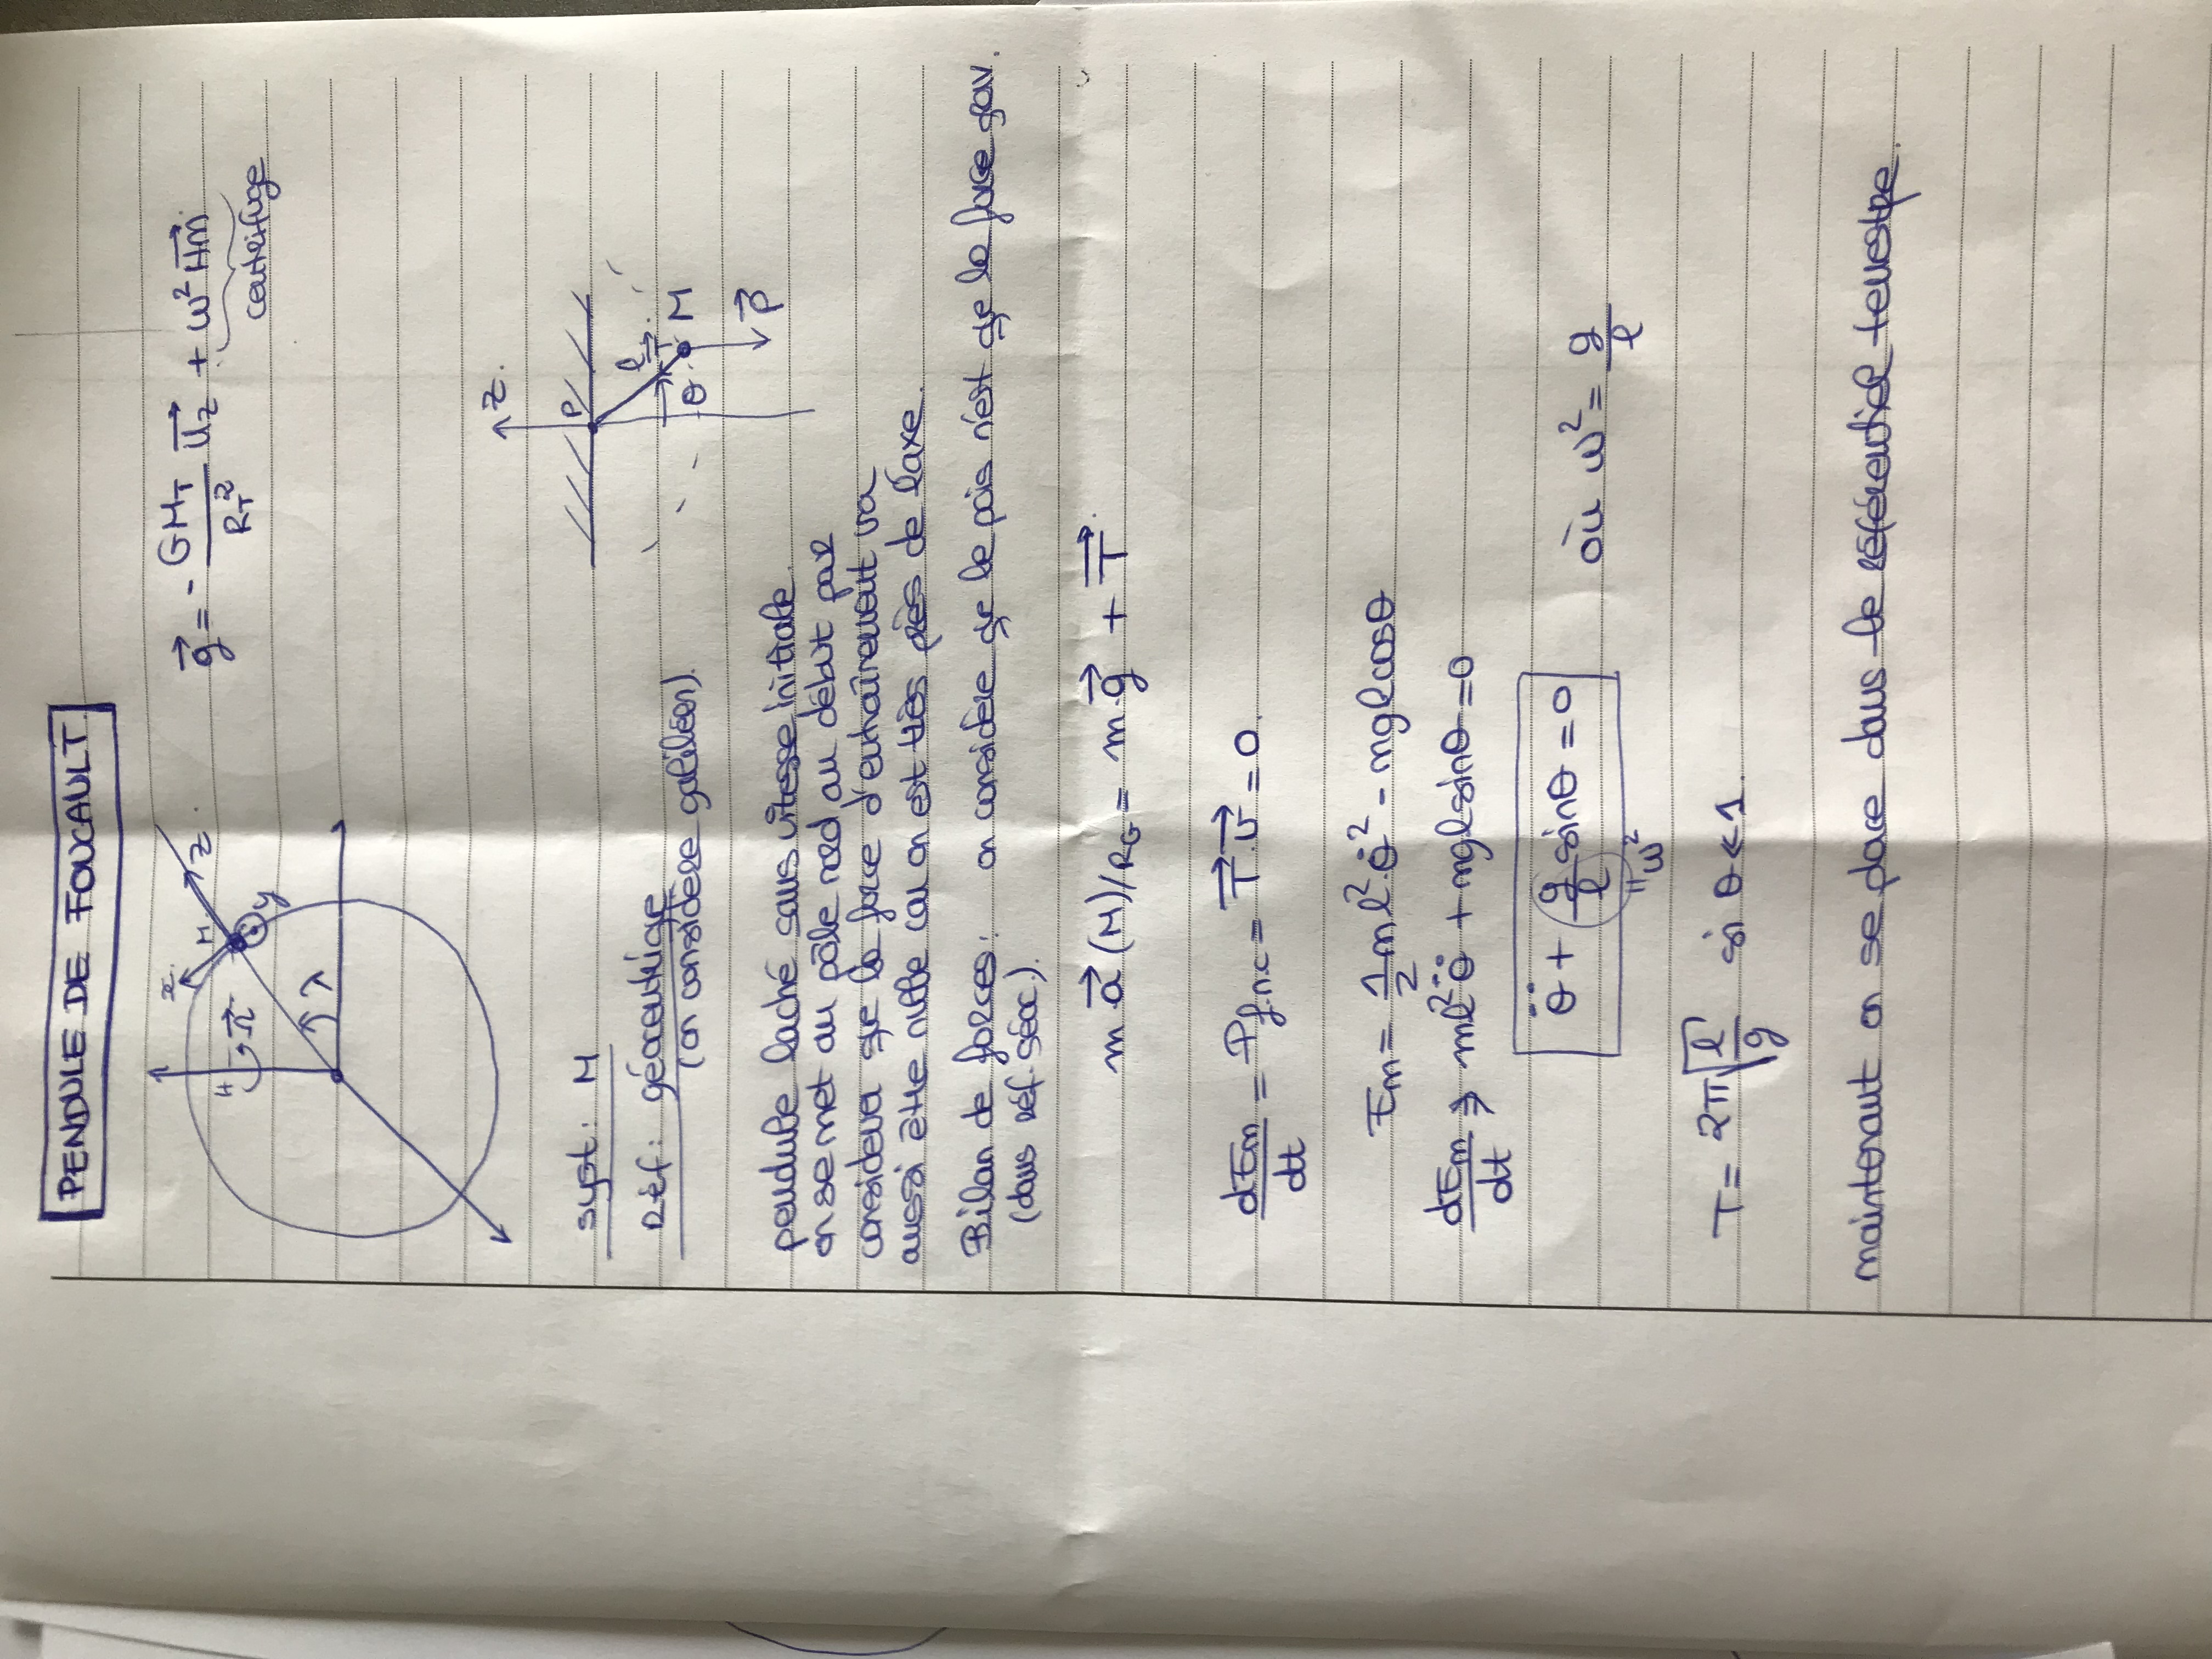 PENDULE DE FOUCAULT.
x
M
z
H
Ω
y
λ
g = - GM_T/R_T² u_z + ω² HM
centrifuge
z.
P
l
T
θ
M
P
syst: M
Réf: géocentrique
(on considère galiléen).
pendule laché sans vitesse initiale.
on se met au pôle nord au début par
considerer que la force d'entraînement va
aussi être nulle car on est très près de l'axe.
Bilan de forces: on considère que le pois n'est que la force grav.
(dans réf. géoc.).
m.a(M)/RG = m.g + T
dEm/dt = P f.n.c = T.v = 0.
Em = 1/2 ml².θ̇² - mglcosθ
dEm/dt ⇒ ml²θ̈ + mglsinθ = 0
θ̈ + g/l sinθ = 0 où ω² = g/l
"ω²
T = 2π√(l/g) si θ << 1.
maintenant on se place dans le référentiel terrestre.